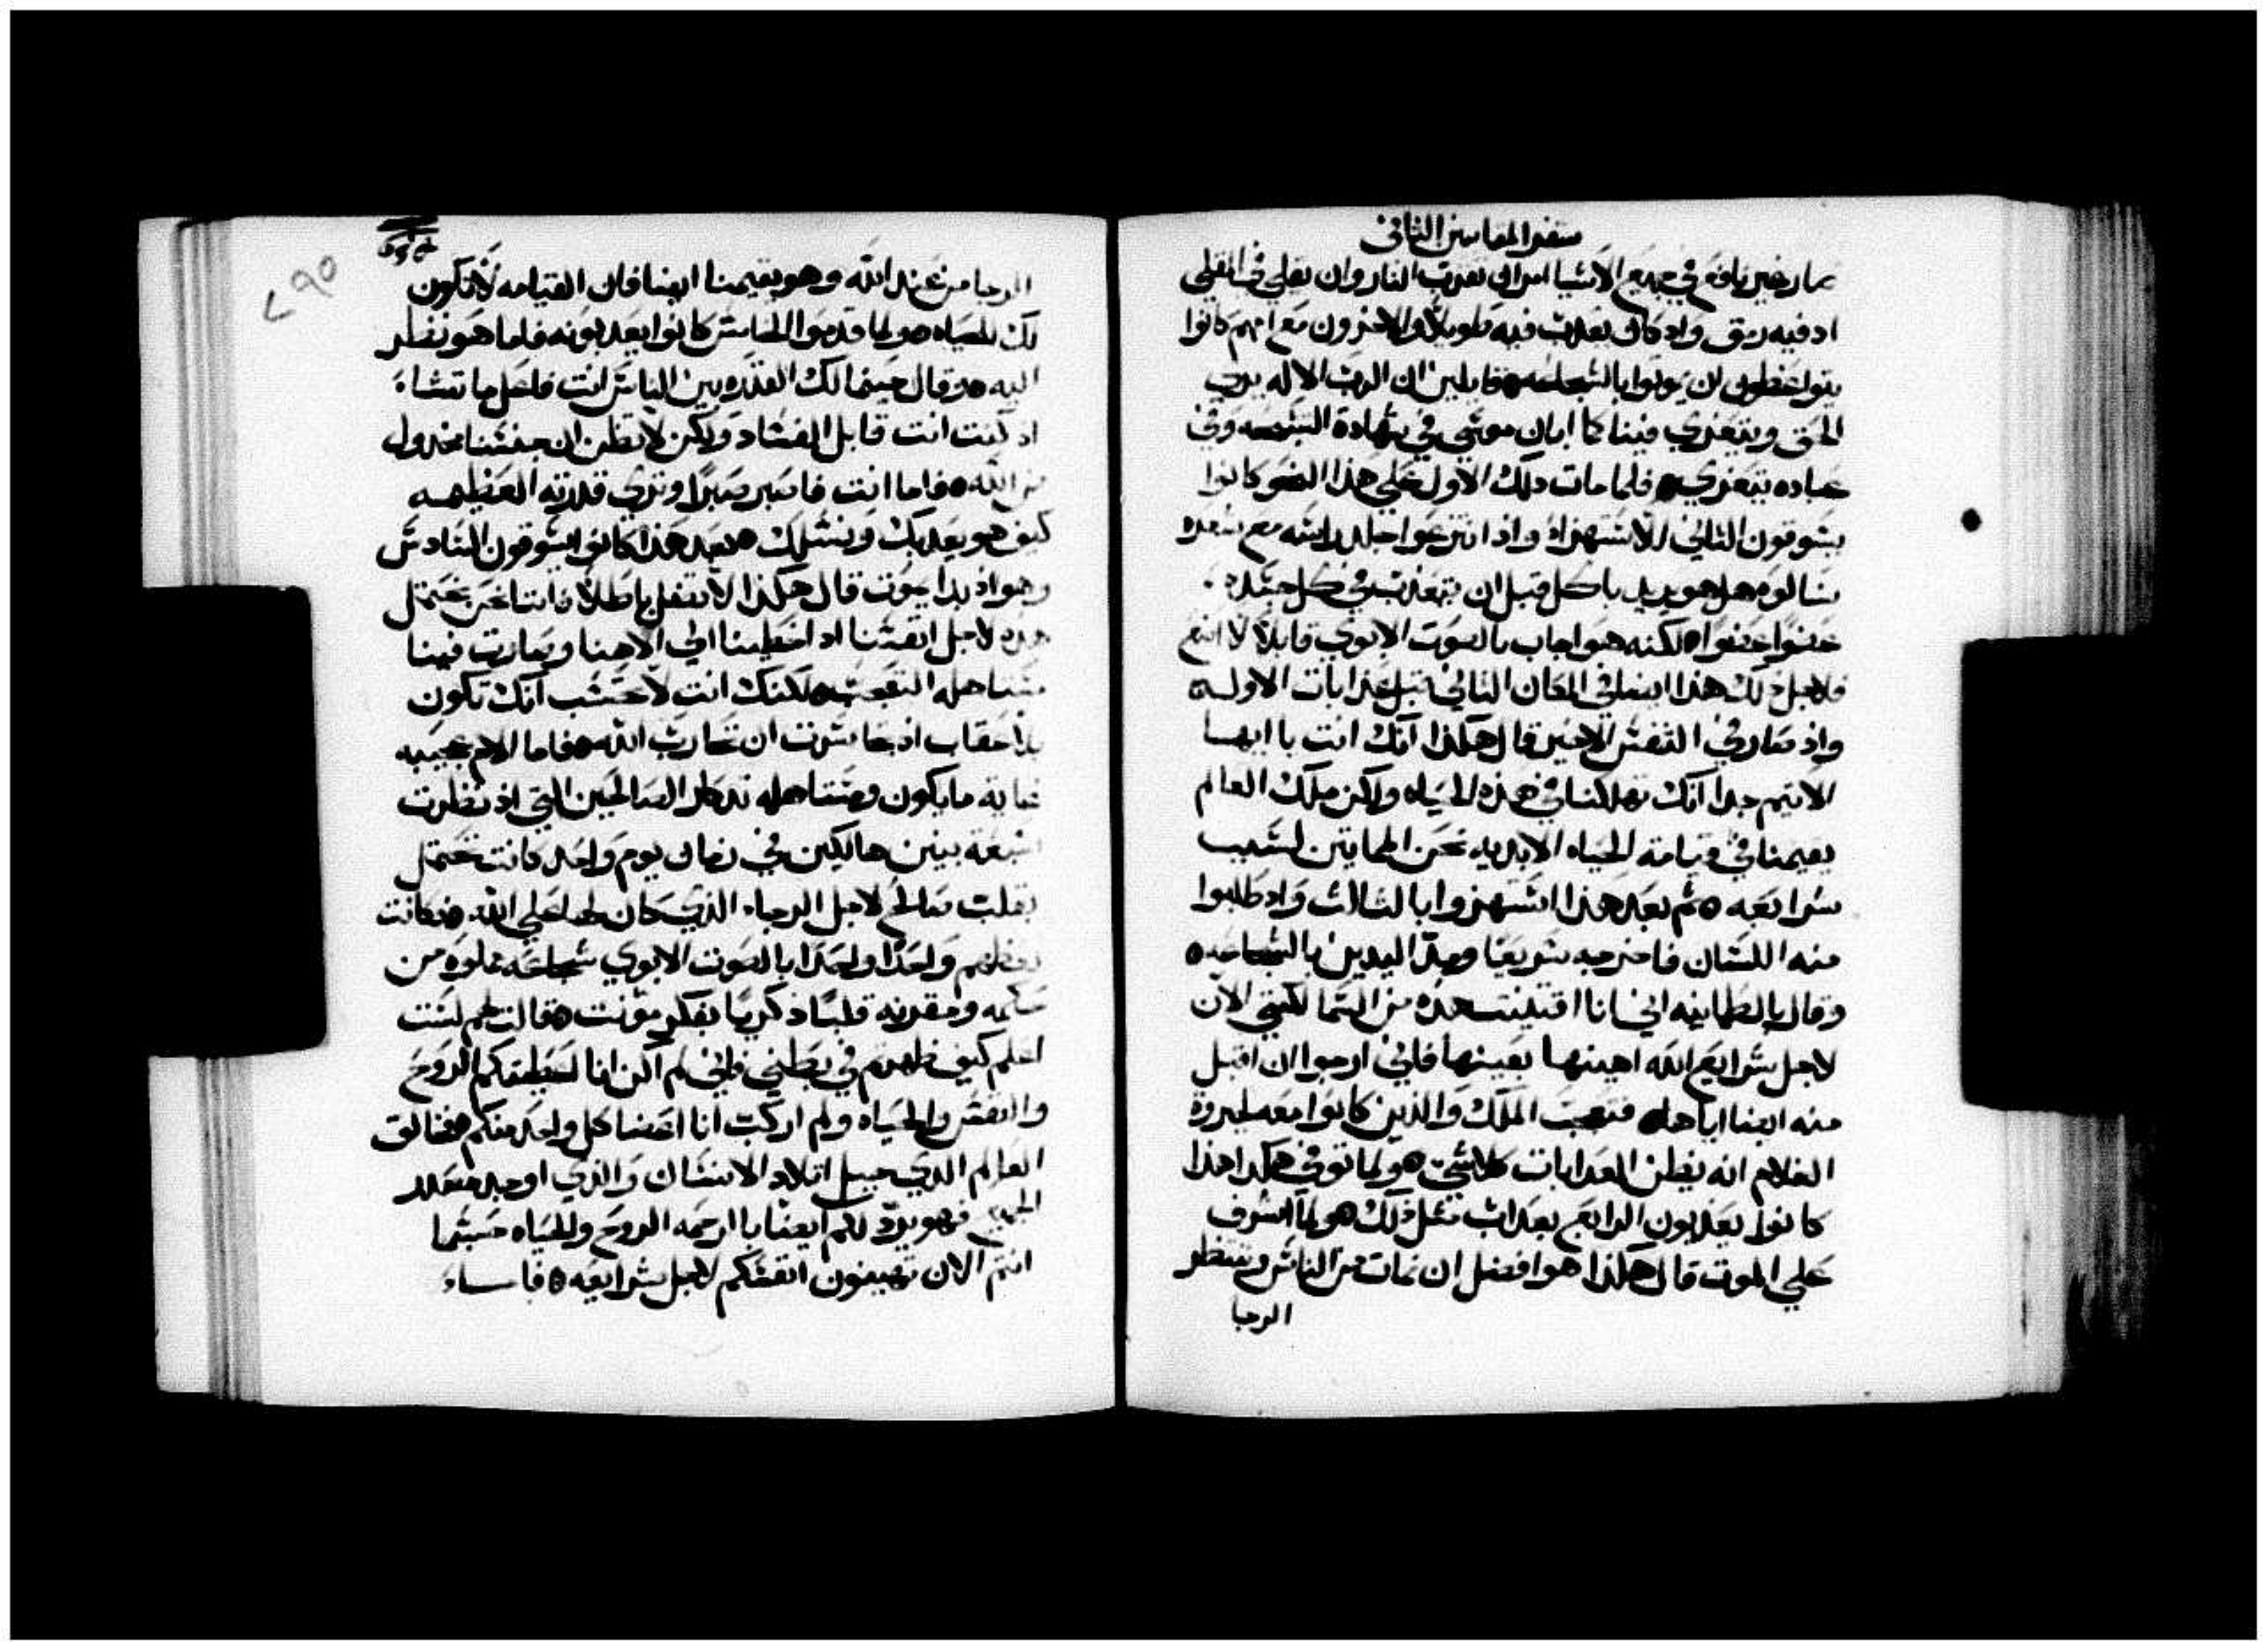 سفر المقابيين الثاني
صار غير نافع في جميع الاشيا امر ان تقرب النار وان يقلي في المقلي
اد فيه ريق واد كان يعدب فيه طويلاً والاخرون مع امهم كانوا
يتواعظون ان يموتوا بالشجاعه قايلين ان الرب الاله يري
الحق ويتعزي فينا كما ابان موسي في شهادة التسبحه وفي
عباده يتعزي فلما مات دلك الاول علي هذا النحو كانوا
يسوقون الثاني للاستهزاء واذ انتزعوا جلد راسه مع شعره
سالوه هل هو يريد ياكل قبل ان يتعذب في كل جسده
عضوا عضوا لكنه هو اجاب بالصوت الابوي قايلا لا انم
فلاجل ذلك هذا ايضا في المكان الثاني قبل عذابات الاوله
واذ صار في النفس الاخير قال هكذا انك انت يا ايها
الاتيم جدا انك تهلكنا في هذه الحياه ولكن ملك العالم
يقيمنا في قيامة الحياه الابديه نحن المايتين لسبب
شرايعه ثم بعد هذا استهزوا بالثالث واد طلبوا
منه اللسان فاخرجه سريعا ومد اليدين بالشجاعه
وقال بالطمانينه اني انا اقتنيت هذه من السما لكنني الان
لاجل شرايع الله اهينها بعينها فاني ارجوا ان اقبل
منه ايضا اياها فتعجب الملك والذين كانوا معه لجبروة
الغلام انه يظن العدابات كلاشي ولما توفي هكدا هذا
كانوا يعدبون الرابع بعداب مثل ذلك ولما اشرف
علي الموت قال هكذا هو افضل ان نمات من الناس وننتظر
الرجا
الرجا من عند الله وهو يقيمنا ايضا فان القيامه لا تكون
لك للحياه ولما قدموا الخامس كانوا يعدبونه فلما هو نظر
اليه وقال حينما لك القدره بين الناس انت فاعل ما تشاء
اد كنت انت قابل الفساد ولكن لا تظن ان جنسنا مخدول
من الله فاما انت فاصبر صبرا وتري قدرته العظيمه
كيف هو يعدبك ونسلك بعد هذا كانوا يسوقون السادس
وهو اذ بدا يموت قال هكذا لا تضل باطلا فاننا نحن نحتمل
هده لاجل انفسنا اد اخطينا الي الاهنا وصارت فينا
مستاهله التعجب لكنك انت لا تحتسب انك تكون
بلا عقاب اذ جاسرت ان تحارب الله فاما الام عجيبه
غاية ما يكون ومستاهله تدكار الصالحين التي اذ نظرت
سبعة بنين هالكين في زمان يوم واحد كانت تحتمل
بقلب صالح لاجل الرجاء الذي كان لها علي الله فكانت
تعظهم واحدا واحدا بالصوت الابوي شجاعه مملوه من
حكمه ومقدنه قلبا ذكريا بفكر مونت فقالت لهم لست
اعلم كيف ظهرتم في بطني فاني لم اكن انا اعطيتكم الروح
والنفس والحياه ولم اركب انا اعضا كل واحد منكم فخالق
العالم الدي جبل اتلاد الانسان والذي اوجد مبتدا
الجميع فهو يرد لكم ايضا بالرحمه الروح والحياه حسبما
انتم الان تهينون انفسكم لاجل شرايعه فاساء